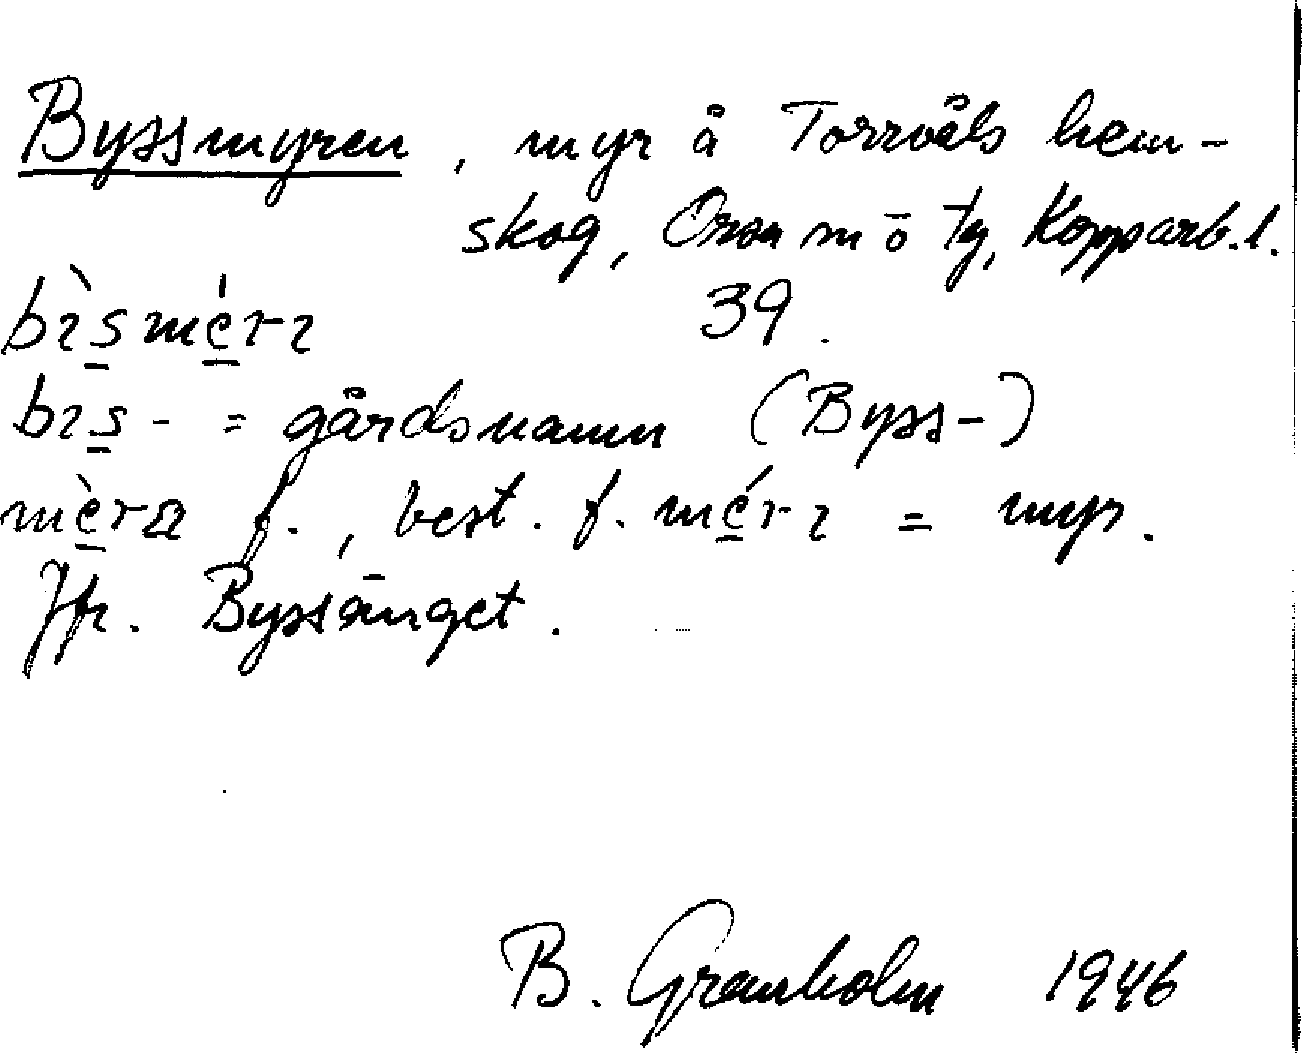 Byssmyren, myr å Torrvåls hem-
skog, Orsa m ō tg, Kopparb. l.
bìsmérı 39.
bıs- = gårdsnamn (Byss-)
mèra f., best. f. mérı = myr.
Jfr. Byssänget.
B. Granholm 1946